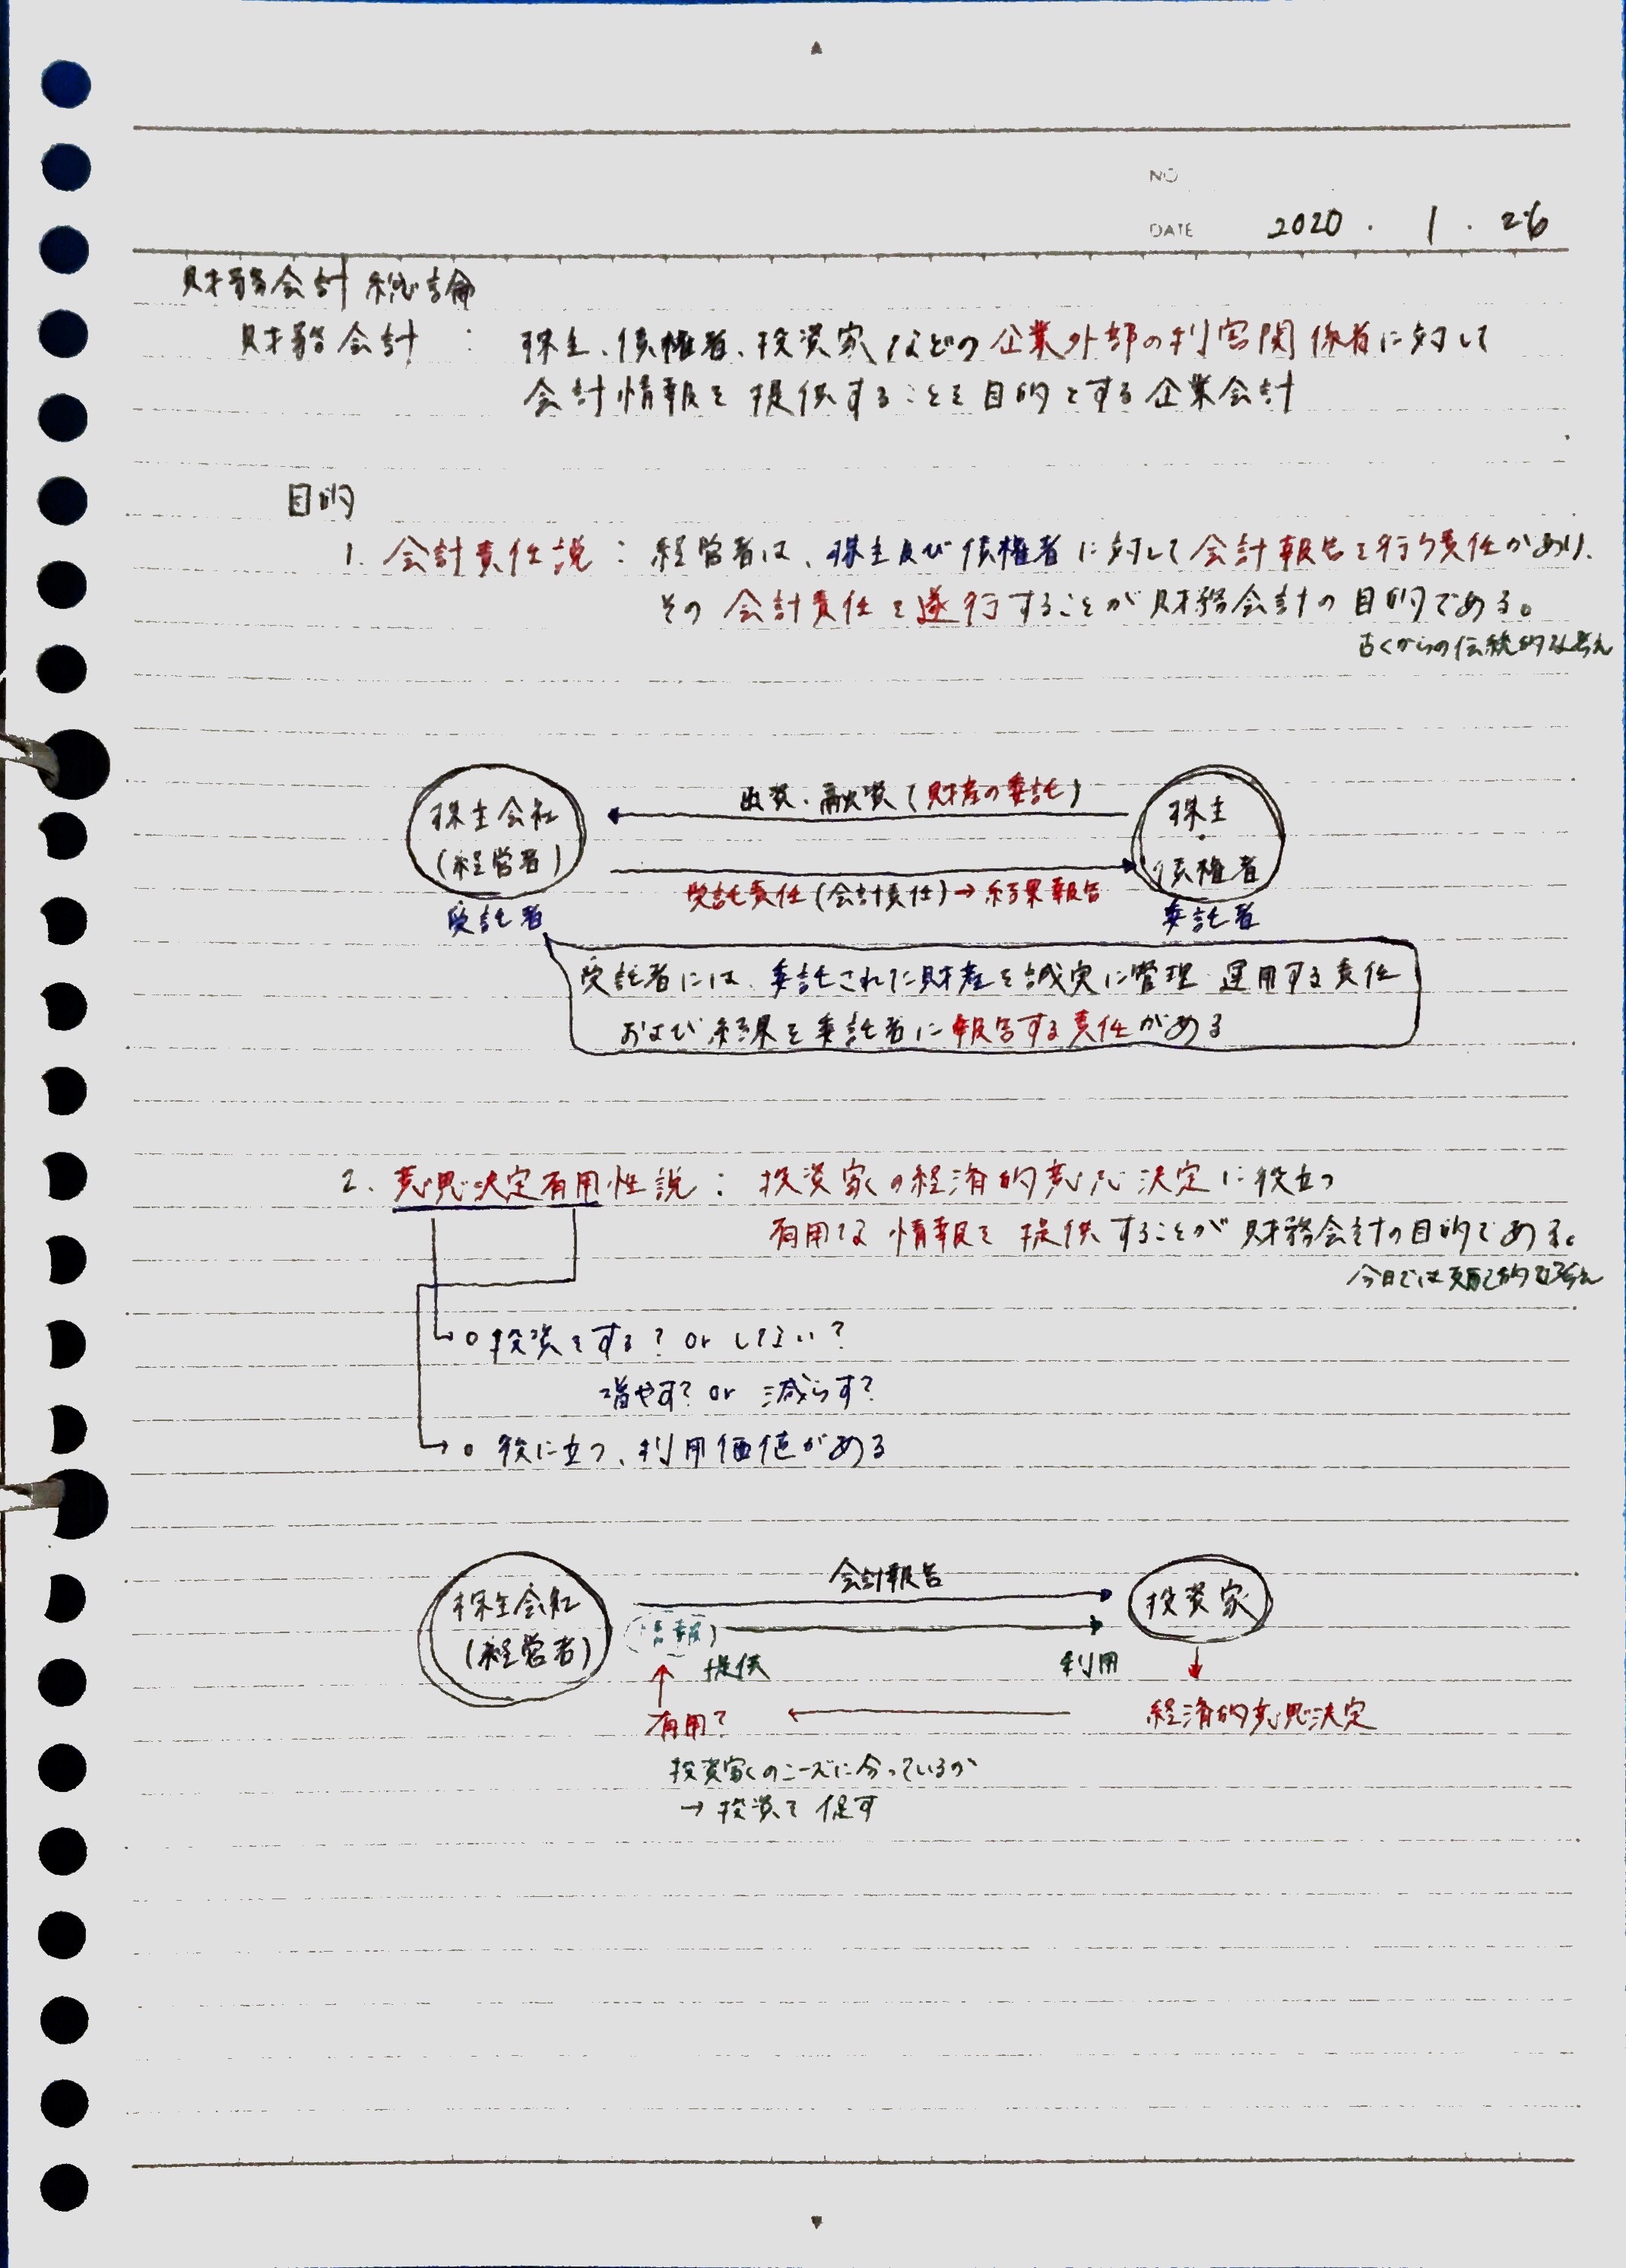 NO
DATE 2020 . 1 . 26
財務会計 総論
財務会計 : 株主、債権者、投資家などの企業外部の利害関係者に対して
会計情報を提供することを目的とする企業会計
目的
1. 会計責任説 : 経営者は、株主及び債権者に対して会計報告を行う責任があり、
その会計責任を遂行することが財務会計の目的である。
古くからの伝統的な考え
出資、融資 (財産の委託)
株主会社
(経営者)
株主
・
債権者
受託責任 (会計責任) → 結果報告
受託者
委託者
受託者には、委託された財産を誠実に管理 運用する責任
および 結果を委託者に報告する責任がある
2. 意思決定有用性説 : 投資家の経済的意思決定に役立つ
有用な情報を提供することが財務会計の目的である。
今日では支配的な考え
○ 投資をする? or しない?
増やす? or 減らす?
○ 役に立つ、利用価値がある
会計報告
株主会社
(経営者)
投資家
情報
提供
利用
有用?
経済的意思決定
投資家のニーズに合っているか
→ 投資を促す